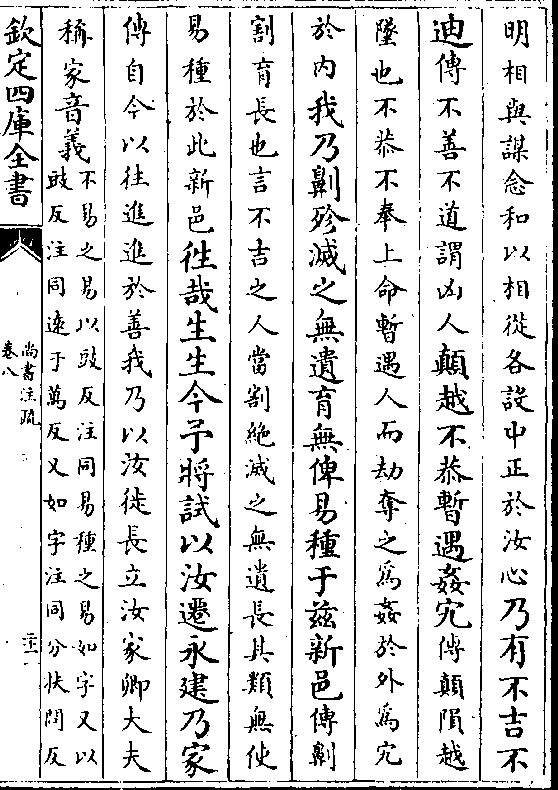 明相與謀念和以相從各設中正於汝心乃有不吉不
迪傳不善不道謂凶人顛越不恭暫遇姦宄傳顛隕越
墜也不恭不奉上命暫遇人而劫奪之為姦於外為宄
於内我乃劓殄滅之無遺育無俾易種于兹新邑傳劓
割育長也言不吉之人當割絶滅之無遺長其類無使
易種於此新邑徃哉生生今予將試以汝遷永建乃家
傳自今以往進進於善我乃以汝徙長立汝家卿大夫
稱家音義不易之易以豉反注同易種之易如字又以
豉反注同逺于萬反又如字注同分扶問反
欽定四庫全書
尚書注疏
卷八
二十一